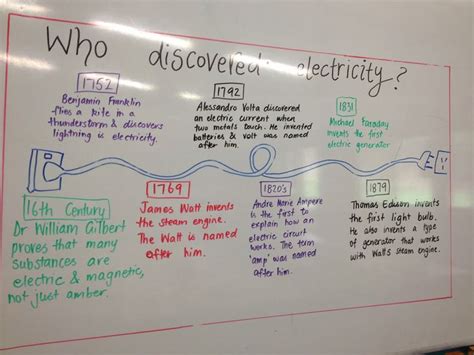 Who discovered electricity?
1752
Benjamin Franklin
flies a kite in a
thunderstorm & discovers
lightning is electricity.
1792
Alessandro Volta discovered
an electric current when
two metals touch. He invented
batteries & volt was named
after him.
1831
Michael Faraday
invents the first
electric generator
16th Century
Dr William Gilbert
proves that many
substances are
electric & magnetic,
not just amber.
1769
James Watt invents
the steam engine.
The Watt is named
after him.
1820's
Andre Marie Ampere
is the first to
explain how an
electric circuit
works. The term
'amp' was named
after him.
1879
Thomas Edison invents
the first light bulb.
He also invents a type
of generator that works
with Watt's steam engine.